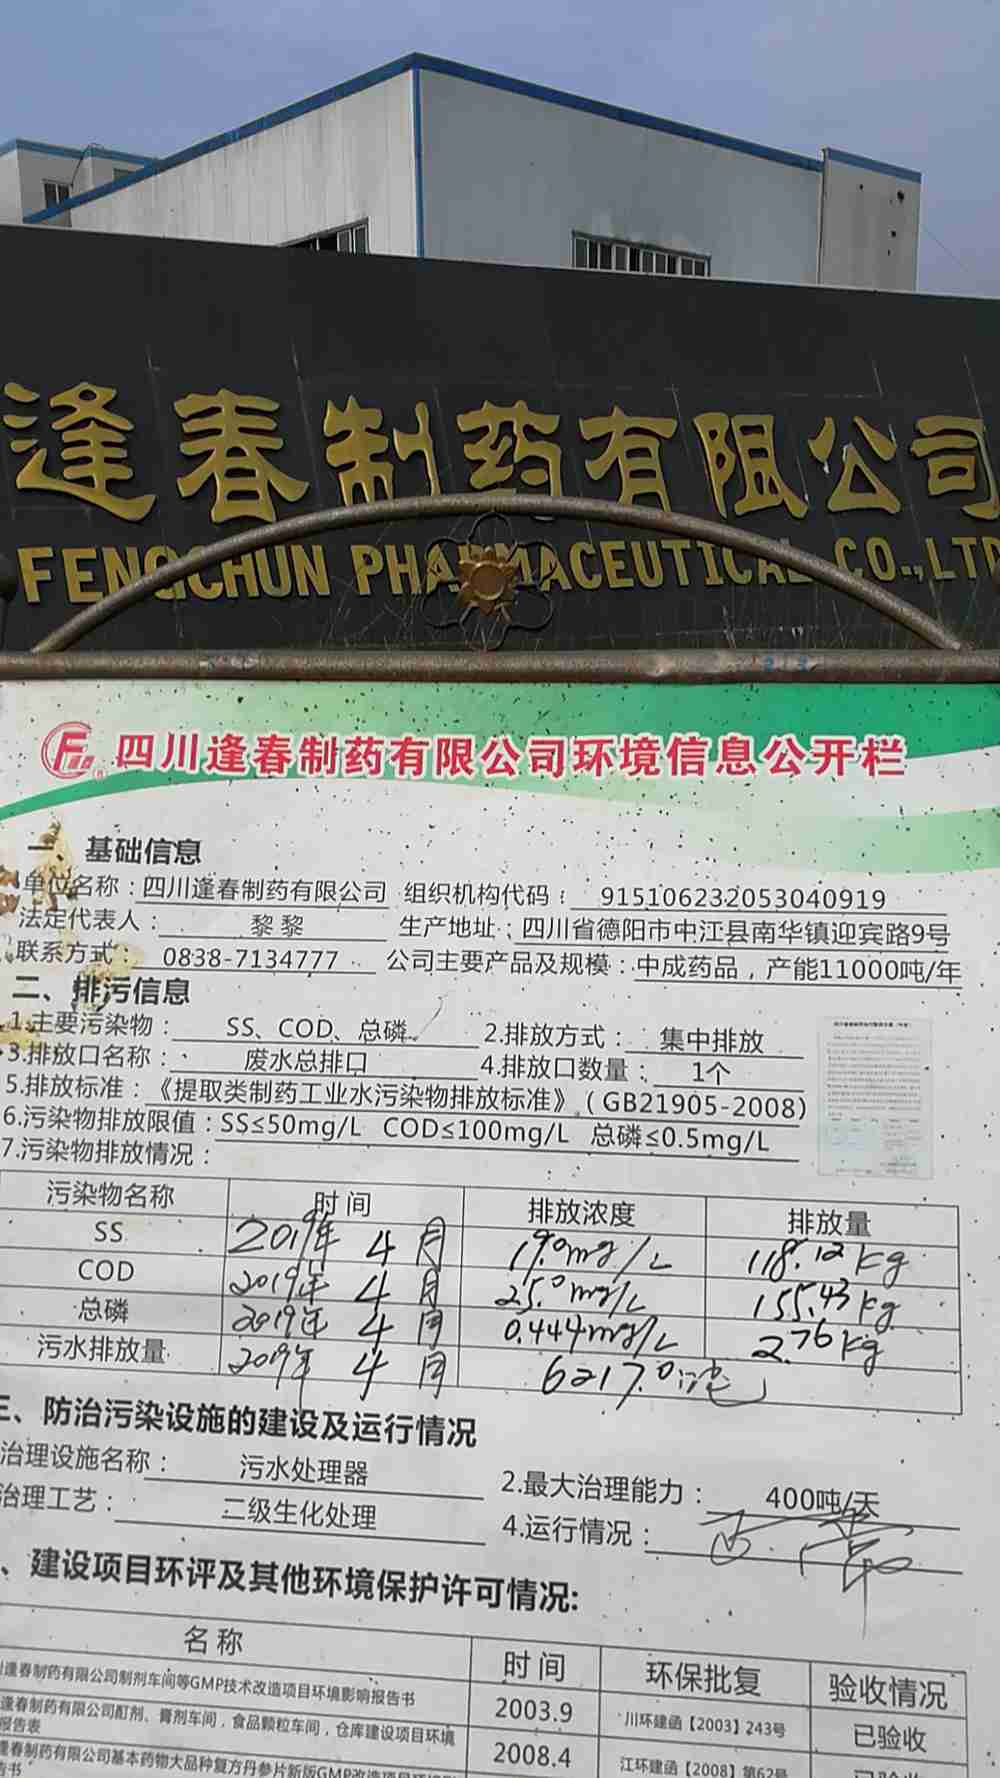 逢春制药有限公司
FENGCHUN PHARMACEUTICAL CO.,LTD
四川逢春制药有限公司环境信息公开栏
一、基础信息
单位名称：四川逢春制药有限公司 组织机构代码：915106232053040919
法定代表人：黎黎 生产地址：四川省德阳市中江县南华镇迎宾路9号
联系方式：0838-7134777 公司主要产品及规模：中成药品，产能11000吨/年
二、排污信息
1.主要污染物：SS、COD、总磷 2.排放方式：集中排放
3.排放口名称：废水总排口 4.排放口数量：1个
5.排放标准：《提取类制药工业水污染物排放标准》（GB21905-2008）
6.污染物排放限值：SS≤50mg/L COD≤100mg/L 总磷≤0.5mg/L
7.污染物排放情况：
污染物名称 时间 排放浓度 排放量
SS 2019年4月 19.0mg/L 118.12kg
COD 2019年4月 25.0mg/L 155.43kg
总磷 2019年4月 0.444mg/L 2.76kg
污水排放量 2019年4月 6217.0吨
三、防治污染设施的建设及运行情况
治理设施名称：污水处理器 2.最大治理能力：400吨/天
治理工艺：二级生化处理 4.运行情况：正常
、建设项目环评及其他环境保护许可情况:
名称 时间 环保批复 验收情况
逢春制药有限公司制剂车间等GMP技术改造项目环境影响报告书 2003.9 川环建函【2003】243号 已验收
逢春制药有限公司酊剂、膏剂车间，食品颗粒车间，仓库建设项目环境
报告表 2008.4 江环建函【2008】第62号
逢春制药有限公司基本药物大品种复方丹参片新版GMP改造项目环境
告书